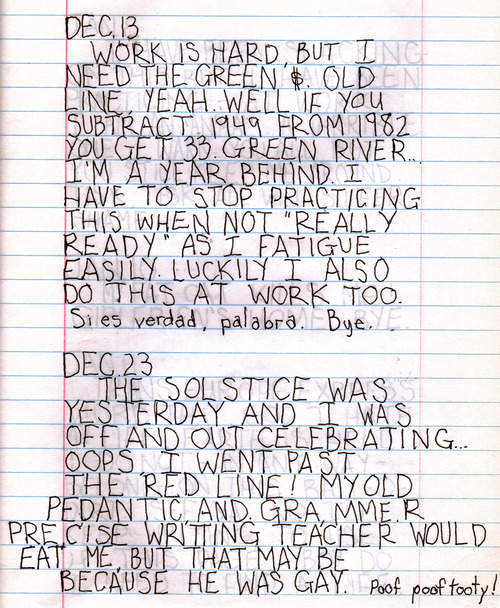 DEC. 13
WORK IS HARD, BUT I
NEED THE GREEN $. OLD
LINE, YEAH. WELL IF YOU
SUBTRACT 1949 FROM 1982
YOU GET 33. GREEN RIVER...
I'M A YEAR BEHIND. I
HAVE TO STOP PRACTICING
THIS WHEN NOT "REALLY
READY" AS I FATIGUE
EASILY. LUCKILY I ALSO
DO THIS AT WORK TOO.
Si es verdad, palabra. Bye.
DEC. 23
THE SOLSTICE WAS
YESTERDAY AND I WAS
OFF AND OUT CELEBRATING...
OOPS, I WENT PAST
THE RED LINE! MY OLD
PEDANTIC AND GRAMMER
PRECISE WRITTING TEACHER WOULD
EAT ME, BUT THAT MAY BE
BECAUSE HE WAS GAY. Poof poof tooty!